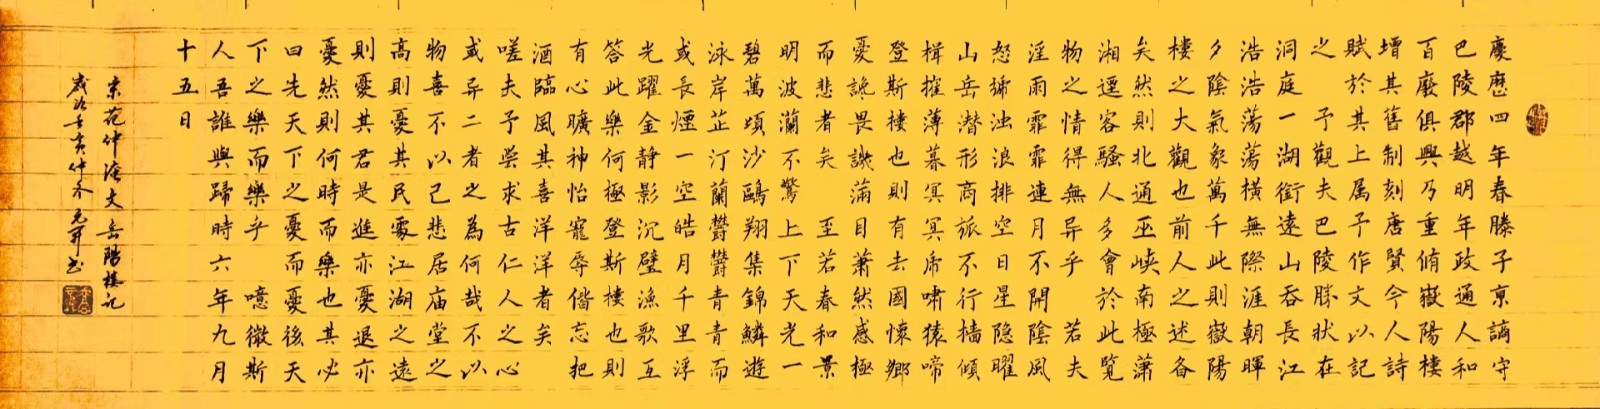 慶曆四年春滕子京謫守
巴陵郡越明年政通人和
百廢俱興乃重脩嶽陽樓
增其舊制刻唐賢今人詩
賦於其上属予作文以記
之 予觀夫巴陵勝狀在
洞庭一湖銜遠山吞長江
浩浩蕩蕩橫無際涯朝暉
夕陰氣象萬千此則嶽陽
樓之大觀也前人之述备
矣然則北通巫峽南極蕭
湘遷客騷人多會於此覽
物之情得無异乎 若夫
淫雨霏霏連月不開陰風
怒號浊浪排空日星隐曜
山岳潜形商旅不行檣傾
楫摧薄暮冥冥虎嘯猿啼
登斯樓也則有去國懷鄉
憂讒畏譏滿目蕭然感極
而悲者矣 至若春和景
明波瀾不驚上下天光一
碧萬頃沙鷗翔集錦鱗遊
泳岸芷汀蘭鬱鬱青青而
或長煙一空皓月千里浮
光躍金静影沉璧漁歌互
答此樂何極登斯樓也則
有心曠神怡寵辱偕忘把
酒臨風其喜洋洋者矣
嗟夫予嘗求古仁人之心
或异二者之為何哉不以
物喜不以己悲居庙堂之
高則憂其民處江湖之遠
則憂其君是進亦憂退亦
憂然則何時而樂也其必
曰先天下之憂而憂後天
下之樂而樂乎 噫微斯
人吾誰與歸時六年九月
十五日
宋范仲淹文岳陽樓記
歲次壬寅仲冬